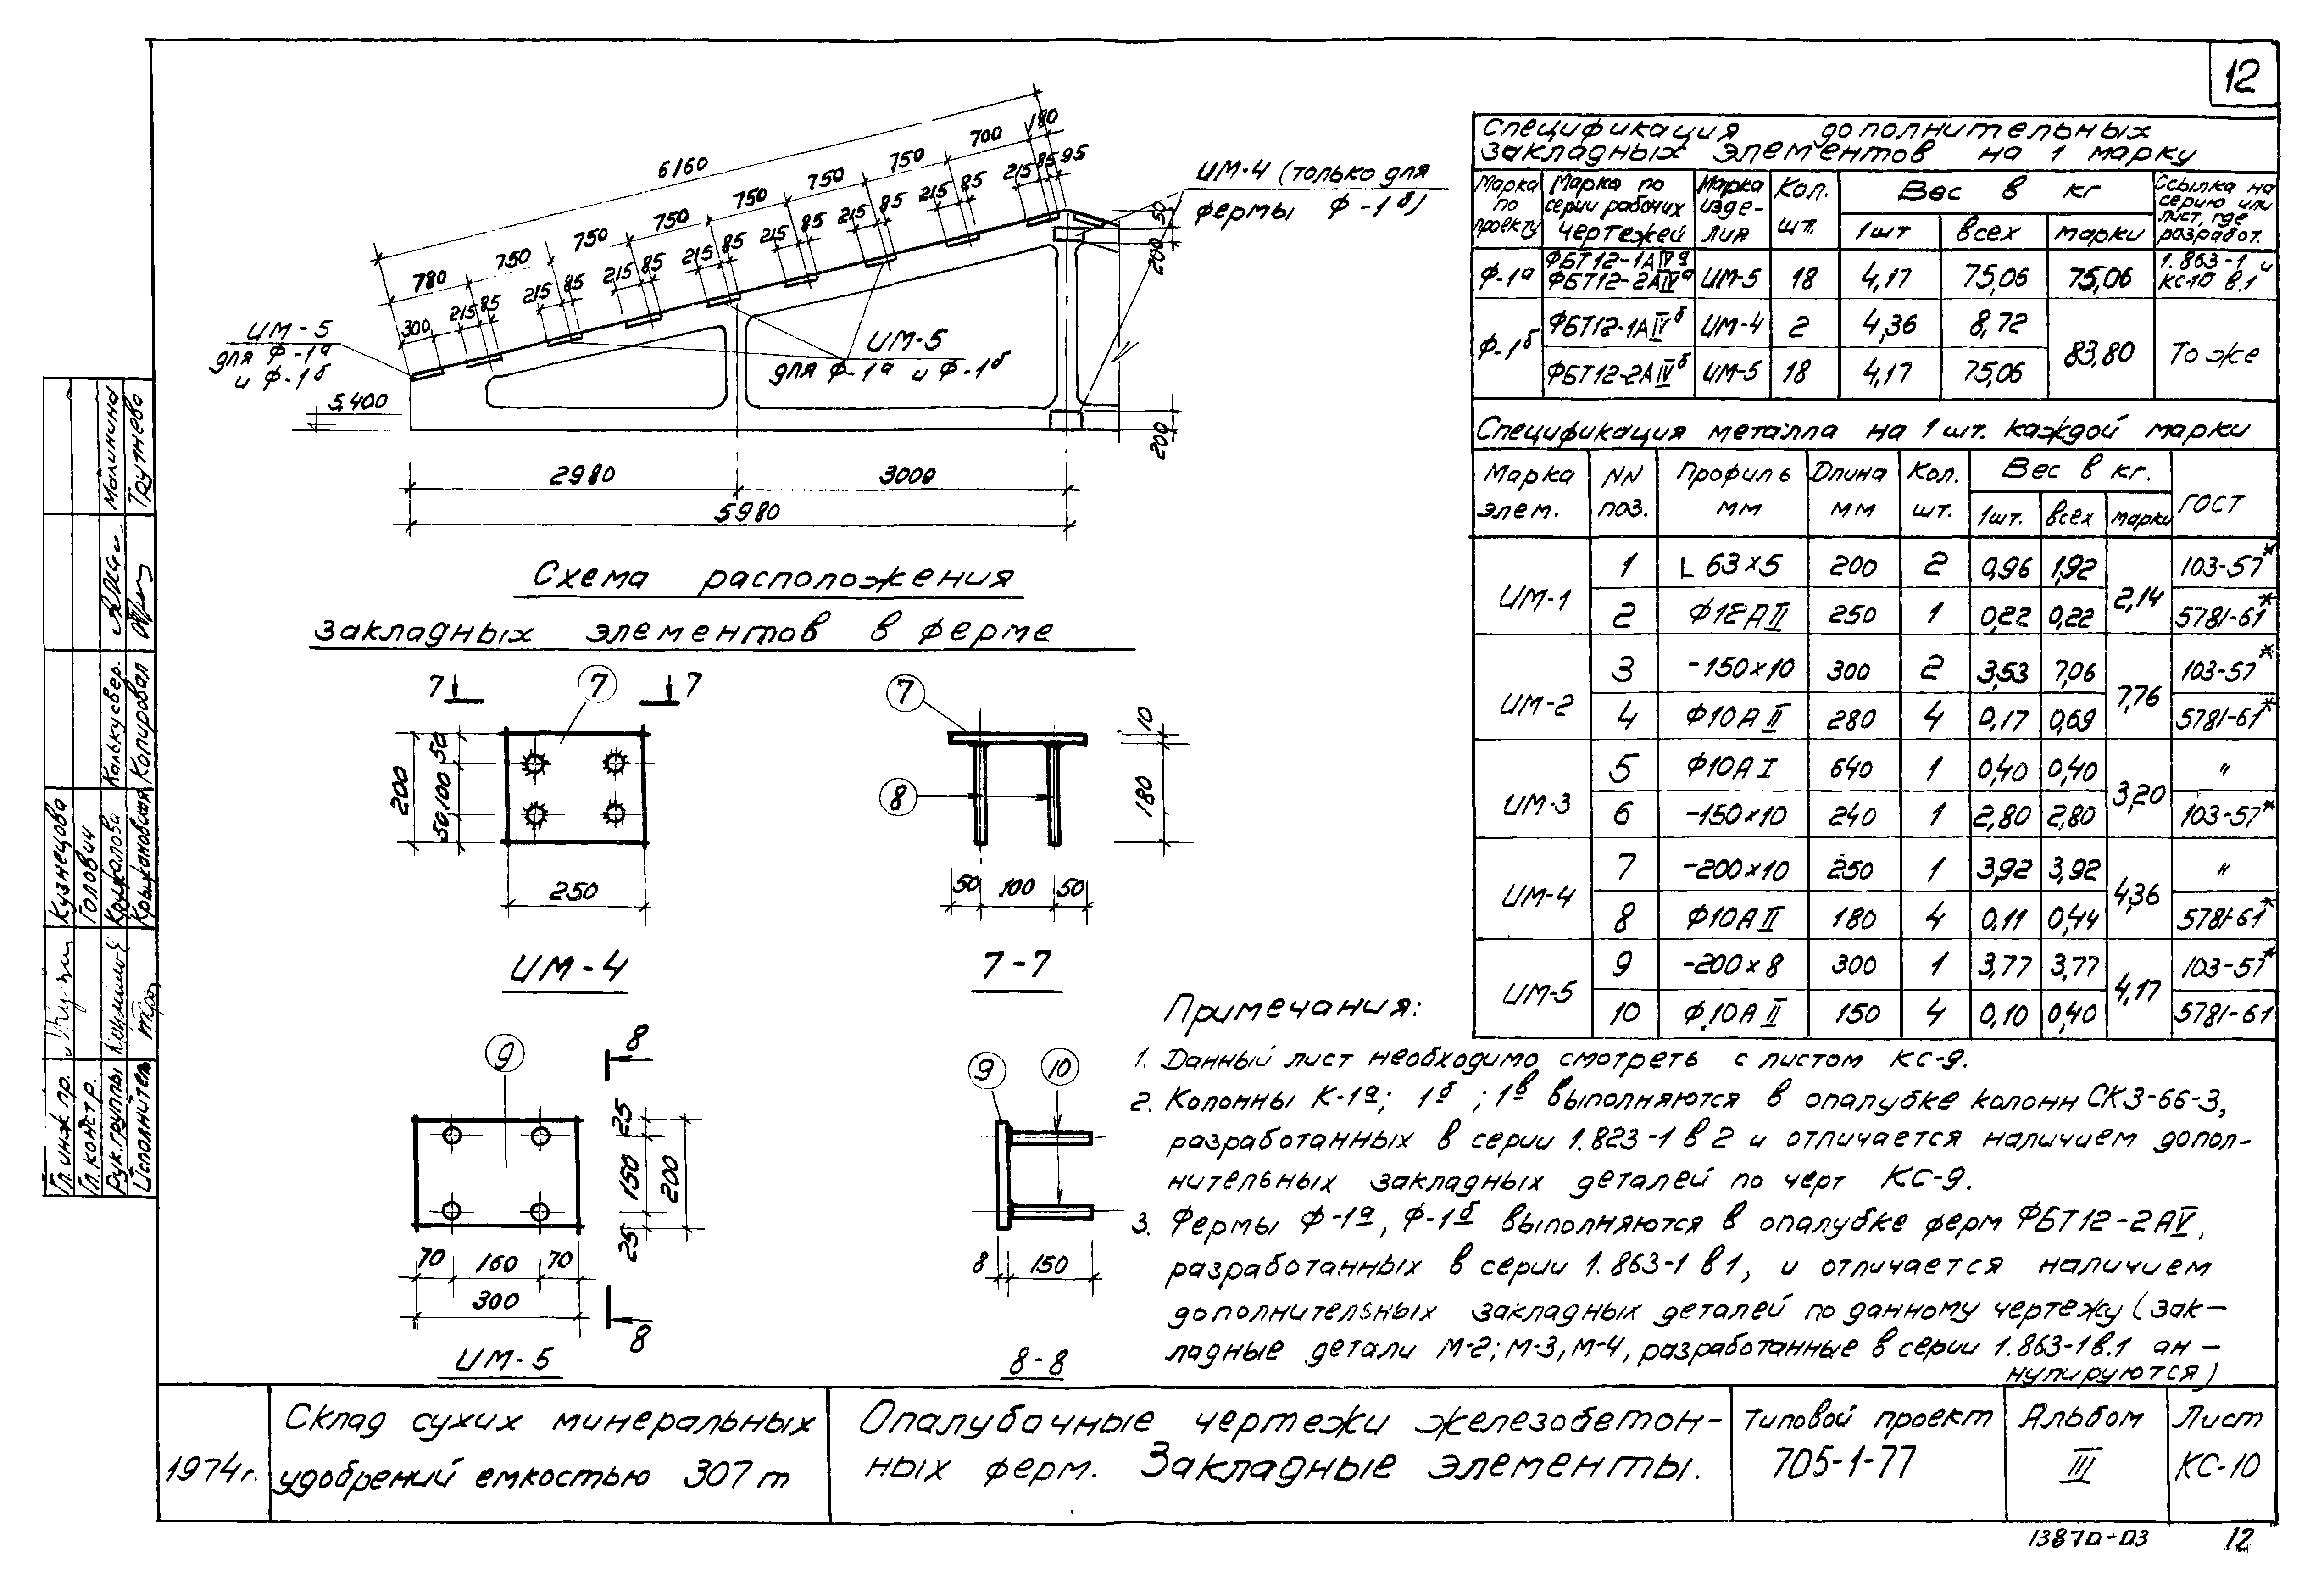 12
6160
780
750
750
750
750
750
750
700
180
300
215 85
215 85
215 85
215 85
215 85
215 85
215 85
215 85 95
ИМ-5
для Ф-1а
и Ф-1б
ИМ-5
для Ф-1а и Ф-1б
ИМ-4 (только для
фермы Ф-1б)
50
200
200
5,400
2980
3000
5980
Схема расположения
закладных элементов в ферме
7
7
7
50
100
50
200
250
ИМ-4
7
8
10
180
50 100 50
7-7
9
8
25
150
25
200
70 160 70
300
8
ИМ-5
9
10
8 150
8-8
Спецификация дополнительных
закладных элементов на 1 марку
Марка по проекту | Марка по серии рабочих чертежей | Марка изделия | Кол. шт. | Вес в кг | Ссылка на серию или лист, где разработ.
1шт | всех | марки
Ф-1а | ФБТ12-1АIVа ФБТ12-2АIVа | ИМ-5 | 18 | 4,17 | 75,06 | 75,06 | 1.863-1 и КС-10 в.1
Ф-1б | ФБТ12-1АIVб | ИМ-4 | 2 | 4,36 | 8,72 | 83,80 | То же
ФБТ12-2АIVб | ИМ-5 | 18 | 4,17 | 75,06
Спецификация металла на 1 шт. каждой марки
Марка элем. | NN поз. | Профиль мм | Длина мм | Кол. шт. | Вес в кг. | ГОСТ
1шт. | всех | марки
ИМ-1 | 1 | L 63×5 | 200 | 2 | 0,96 | 1,92 | 2,14 | 103-57*
2 | Ф12АII | 250 | 1 | 0,22 | 0,22 | 5781-61*
ИМ-2 | 3 | -150×10 | 300 | 2 | 3,53 | 7,06 | 7,76 | 103-57*
4 | Ф10АII | 280 | 4 | 0,17 | 0,69 | 5781-61*
ИМ-3 | 5 | Ф10АI | 640 | 1 | 0,40 | 0,40 | 3,20 | "
6 | -150×10 | 240 | 1 | 2,80 | 2,80 | 103-57*
ИМ-4 | 7 | -200×10 | 250 | 1 | 3,92 | 3,92 | 4,36 | "
8 | Ф10АII | 180 | 4 | 0,11 | 0,44 | 5781-61*
ИМ-5 | 9 | -200×8 | 300 | 1 | 3,77 | 3,77 | 4,17 | 103-57*
10 | Ф10АII | 150 | 4 | 0,10 | 0,40 | 5781-61
Примечания:
1. Данный лист необходимо смотреть с листом КС-9.
2. Колонны К-1а; 1б ; 1в выполняются в опалубке колонн СК3-66-3,
разработанных в серии 1.823-1 в 2 и отличается наличием допол-
нительных закладных деталей по черт КС-9.
3. Фермы Ф-1а, Ф-1б выполняются в опалубке ферм ФБТ12-2АV,
разработанных в серии 1.863-1 в1, и отличается наличием
дополнительных закладных деталей по данному чертежу (зак-
ладные детали М-2; М-3, М-4, разработанные в серии 1.863-1в.1 ан-
нулируются)
Гл. инж. пр. Кузнецова
Гл. констр. Голович
Рук. группы
Исполнитель Крыжановская
Калькуевер. Малинина
Копировал Трутнева
1974г.
Склад сухих минеральных
удобрений емкостью 307 т
Опалубочные чертежи железобетон-
ных ферм. Закладные элементы.
Типовой проект
705-1-77
Альбом
III
Лист
КС-10
13870-03
12